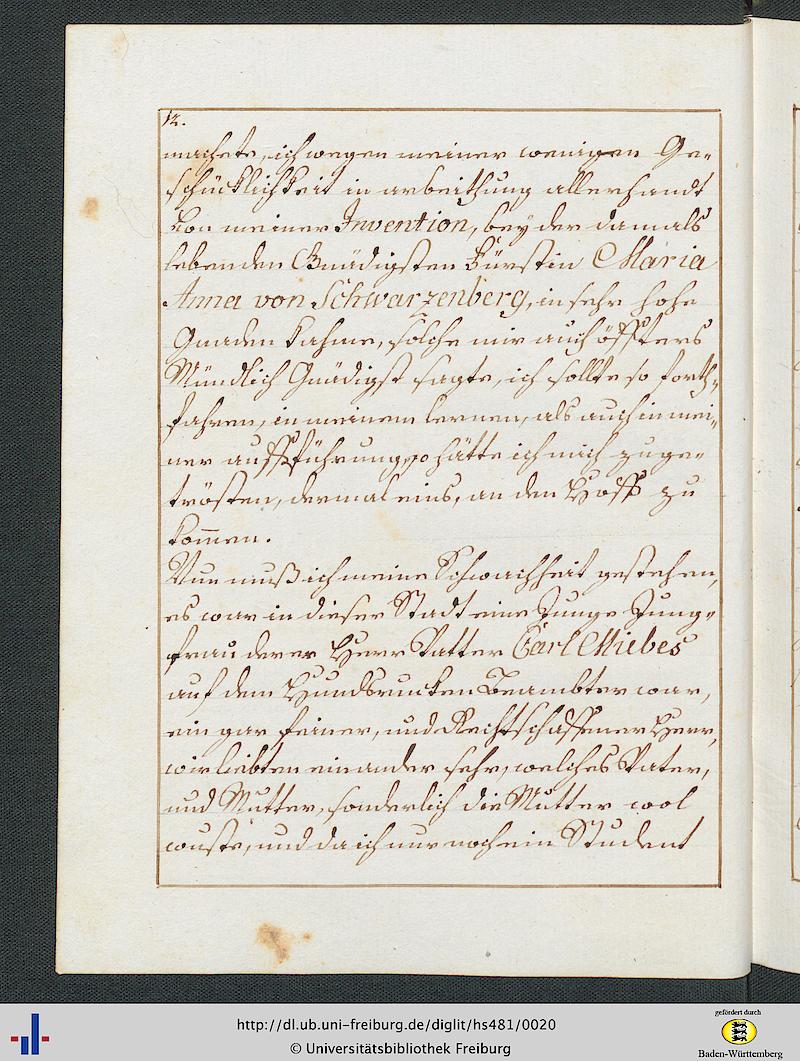 12.
machete, ich wegen meiner wenigen Ge-
schücklichkeit in arbeithung allerhandt
von meiner Invention, bey der damals
lebenden Gnädigsten Fürstin Maria
Anna von Schwarzenberg, in sehr hohe
Gnaden kahme, solche mir auch öffters
Mündlich Gnädigst sagte, ich sollte so forth-
fahren, in meinem lernen, als auch in mei-
ner aufführung, so hätte ich mich zu ge-
trösten, dermaleins, an den Hoff zu
kom̅en.
Nun muß ich meine Schwachheit gestehen,
es war in dieser Stadt eine Junge Jung-
frau deren Herr Vatter Carl Miebes
auf dem Hundsrucken Beambter war,
ein gar feiner, und Rechtschaffener Herr,
wir liebten einander sehr, welches Vater,
und Mutter, sonderlich die Mutter wol
wuste, und da ich nur noch ein Student
http://dl.ub.uni-freiburg.de/diglit/hs481/0020
© Universitätsbibliothek Freiburg
gefördert durch
Baden-Württemberg